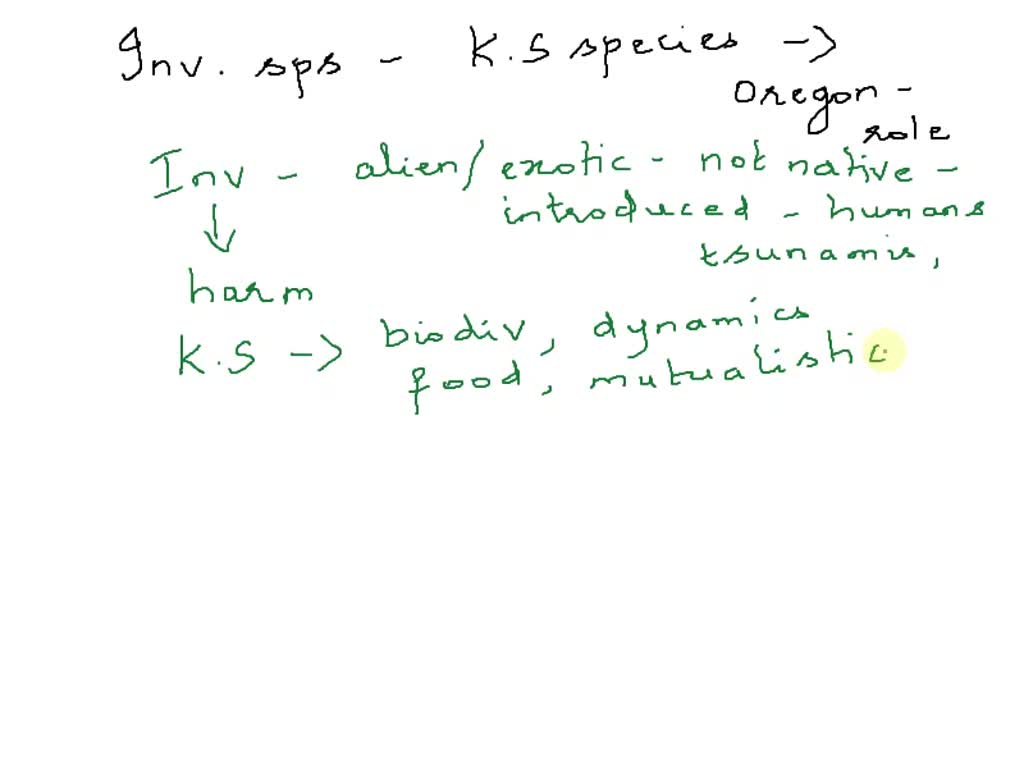 Inv. sps - K.S species ->
Oregon -
role
Inv - alien/exotic - not native -
introduced - humans
tsunamis,
harm
K.S -> biodiv, dynamics
food, mutualistic